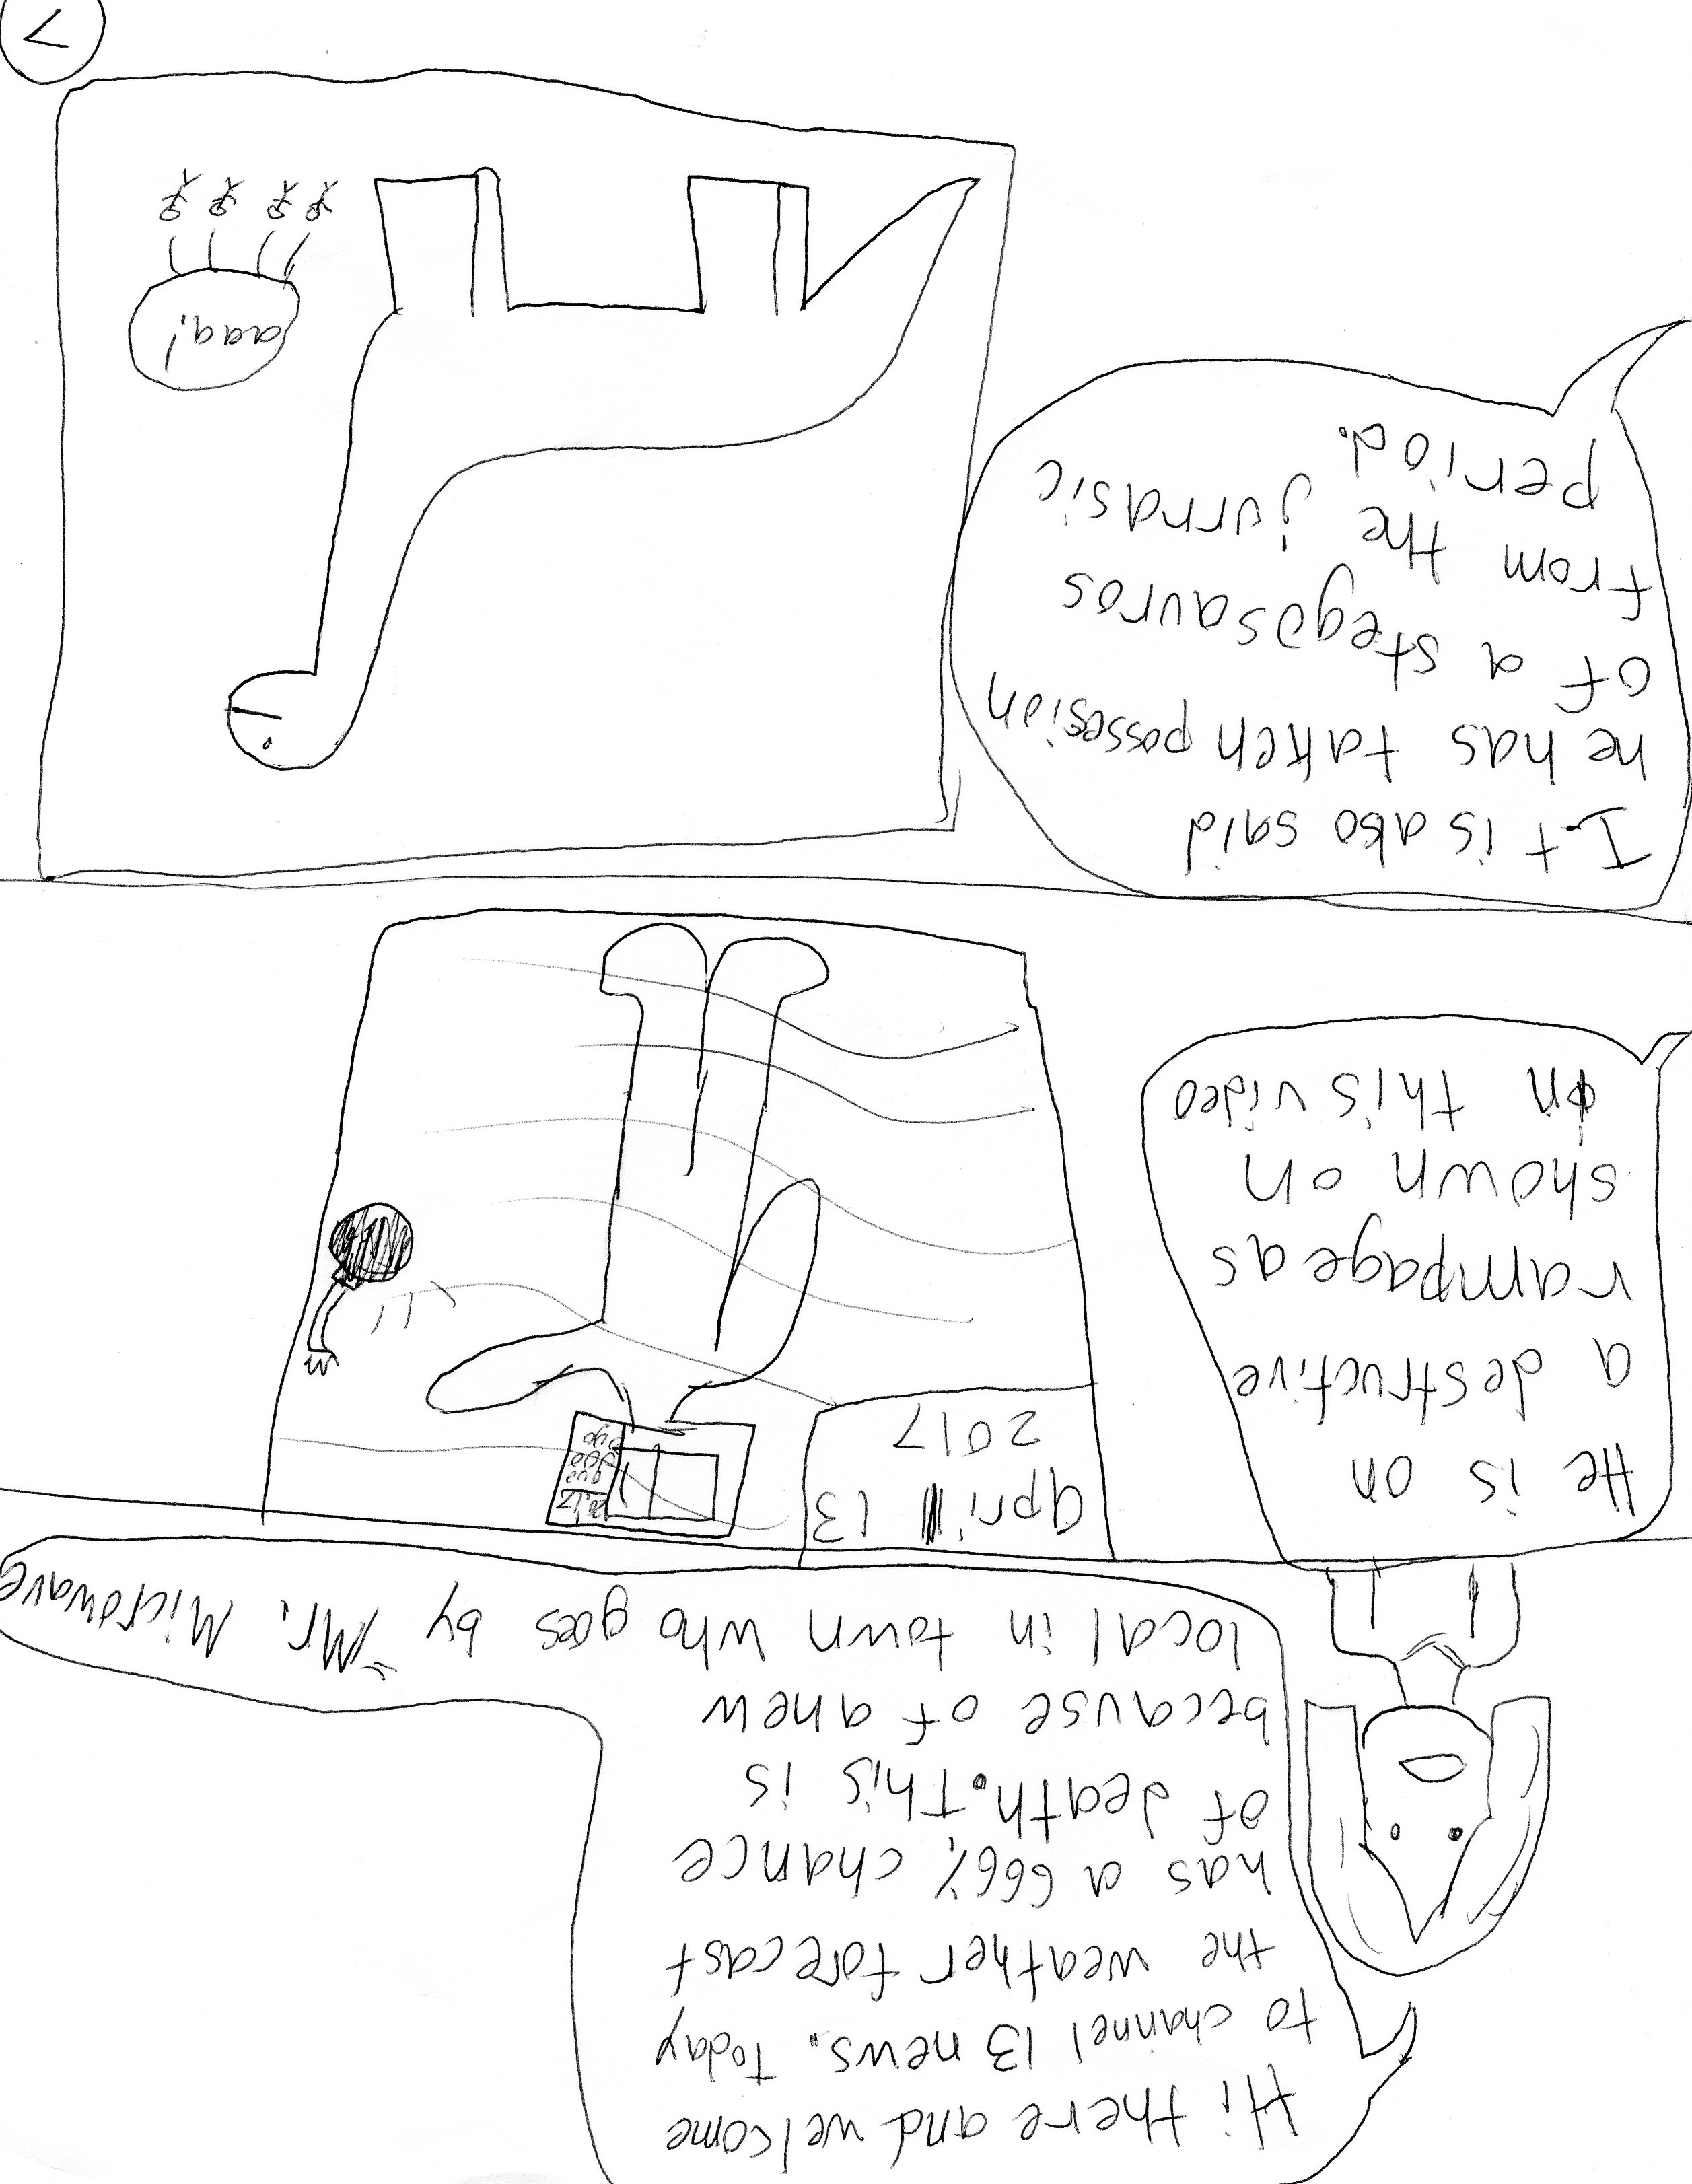 Hi there and welcome
to channel 13 news. Today
the weather forecast
has a 666% chance
of death. This is
because of a new
local in town who goes by "Mr. Microwave
He is on
a destructive
rampage as
shown on
in this video
april 13
2017
It is also said
he has taken possesion
of a stegosauros
from the jurrasic
period.
aaa!
7